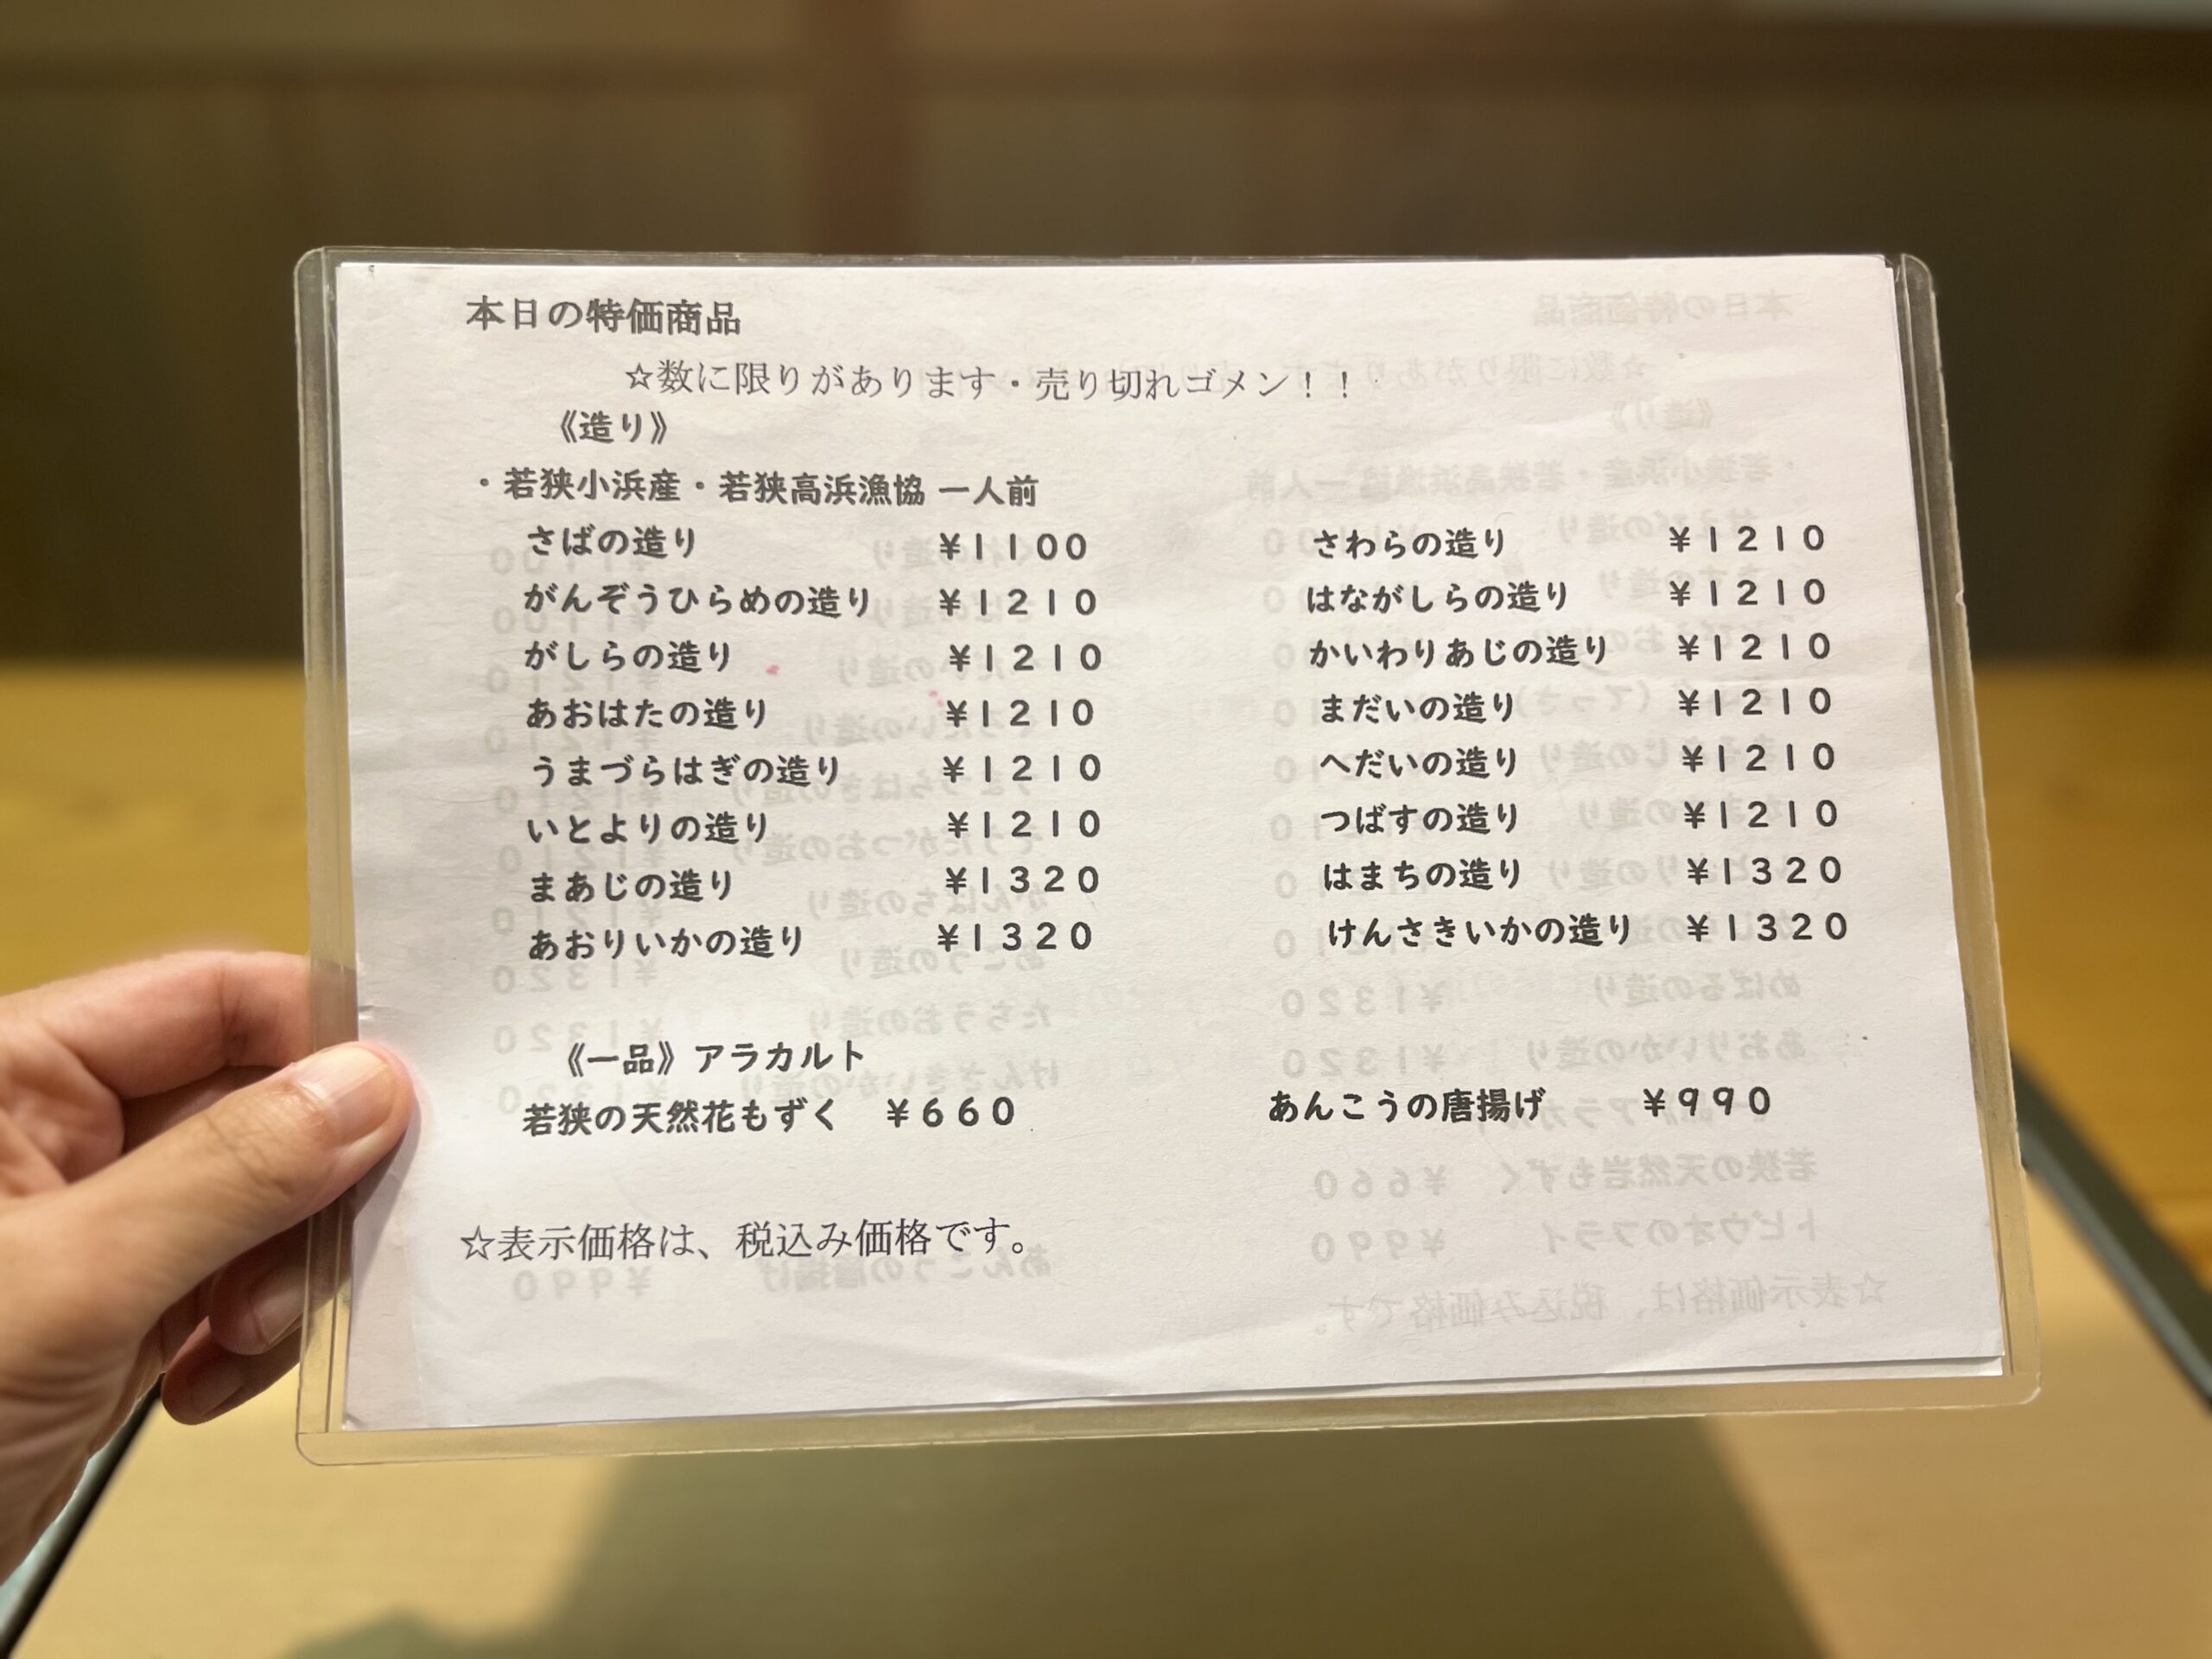 本日の特価商品
☆数に限りがあります・売り切れゴメン！！
《造り》
・若狭小浜産・若狭高浜漁協 一人前
さばの造り ￥１１００
さわらの造り ￥１２１０
がんぞうひらめの造り ￥１２１０
はながしらの造り ￥１２１０
がしらの造り ￥１２１０
かいわりあじの造り ￥１２１０
あおはたの造り ￥１２１０
まだいの造り ￥１２１０
うまづらはぎの造り ￥１２１０
へだいの造り ￥１２１０
いとよりの造り ￥１２１０
つばすの造り ￥１２１０
まあじの造り ￥１３２０
はまちの造り ￥１３２０
あおりいかの造り ￥１３２０
けんさきいかの造り ￥１３２０
《一品》アラカルト
若狭の天然花もずく ￥６６０
あんこうの唐揚げ ￥９９０
☆表示価格は、税込み価格です。